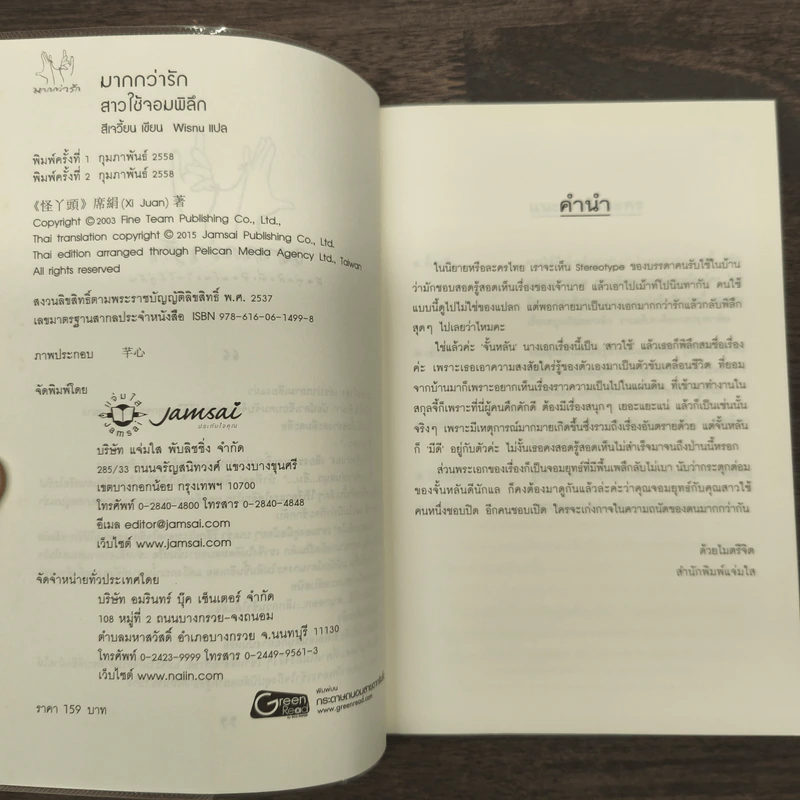 มากกว่ารัก
มากกว่ารัก
สาวใช้จอมพิลึก
สีเจวี้ยน เขียน Wisnu แปล
พิมพ์ครั้งที่ 1 กุมภาพันธ์ 2558
พิมพ์ครั้งที่ 2 กุมภาพันธ์ 2558
《怪丫頭》席絹(Xi Juan) 著
Copyright ©2003 Fine Team Publishing Co., Ltd.,
Thai translation copyright ©2015 Jamsai Publishing Co., Ltd.
Thai edition arranged through Pelican Media Agency Ltd., Taiwan
All rights reserved
สงวนลิขสิทธิ์ตามพระราชบัญญัติลิขสิทธิ์ พ.ศ. 2537
เลขมาตรฐานสากลประจำหนังสือ ISBN 978-616-06-1499-8
ภาพประกอบ 芊心
จัดพิมพ์โดย
แจ่มใส
Jamsai
Jamsai
ประทับใจคุณ
บริษัท แจ่มใส พับลิชชิ่ง จำกัด
285/33 ถนนจรัญสนิทวงศ์ แขวงบางขุนศรี
เขตบางกอกน้อย กรุงเทพฯ 10700
โทรศัพท์ 0-2840-4800 โทรสาร 0-2840-4848
อีเมล editor@jamsai.com
เว็บไซต์ www.jamsai.com
จัดจำหน่ายทั่วประเทศโดย
บริษัท อมรินทร์ บุ๊ค เซ็นเตอร์ จำกัด
108 หมู่ที่ 2 ถนนบางกรวย-จงถนอม
ตำบลมหาสวัสดิ์ อำเภอบางกรวย จ.นนทบุรี 11130
โทรศัพท์ 0-2423-9999 โทรสาร 0-2449-9561-3
เว็บไซต์ www.naiin.com
ราคา 159 บาท
Green Read
พิมพ์บน
กระดาษถนอมสายตากรีนรีด
www.greenread.com
คำนำ
ในนิยายหรือละครไทย เราจะเห็น Stereotype ของบรรดาคนรับใช้ในบ้าน
ว่ามักชอบสอดรู้สอดเห็นเรื่องของเจ้านาย แล้วเอาไปเม้าท์ไปนินทากัน คนใช้
แบบนี้ดูไปไม่ใช่ของแปลก แต่พอกลายมาเป็นนางเอกมากกว่ารักแล้วกลับพิลึก
สุดๆ ไปเลยว่าไหมคะ
ใช่แล้วค่ะ 'จั้นหลัน' นางเอกเรื่องนี้เป็น 'สาวใช้' แล้วเธอก็พิลึกสมชื่อเรื่อง
ค่ะ เพราะเธอเอาความสงสัยใคร่รู้ของตัวเองมาเป็นตัวขับเคลื่อนชีวิต ที่ยอม
จากบ้านมาก็เพราะอยากเห็นเรื่องราวความเป็นไปในแผ่นดิน ที่เข้ามาทำงานใน
สกุลจี้ก็เพราะที่นี่ผู้คนคึกคักดี ต้องมีเรื่องสนุกๆ เยอะแยะแน่ แล้วก็เป็นเช่นนั้น
จริงๆ เพราะมีเหตุการณ์มากมายเกิดขึ้นซึ่งรวมถึงเรื่องอันตรายด้วย แต่จั้นหลัน
ก็ 'มีดี' อยู่กับตัวค่ะ ไม่งั้นเธอคงสอดรู้สอดเห็นไม่สำเร็จมาจนถึงป่านนี้หรอก
ส่วนพระเอกของเรื่องก็เป็นจอมยุทธ์ที่มีพื้นเพลึกลับไม่เบา นับว่ากระตุกต่อม
ของจั้นหลันดีนักแล ก็คงต้องมาดูกันแล้วล่ะค่ะว่าคุณจอมยุทธ์กับคุณสาวใช้
คนหนึ่งชอบปิด อีกคนชอบเปิด ใครจะเก่งกาจในความถนัดของตนมากกว่ากัน
ด้วยไมตรีจิต
สำนักพิมพ์แจ่มใส